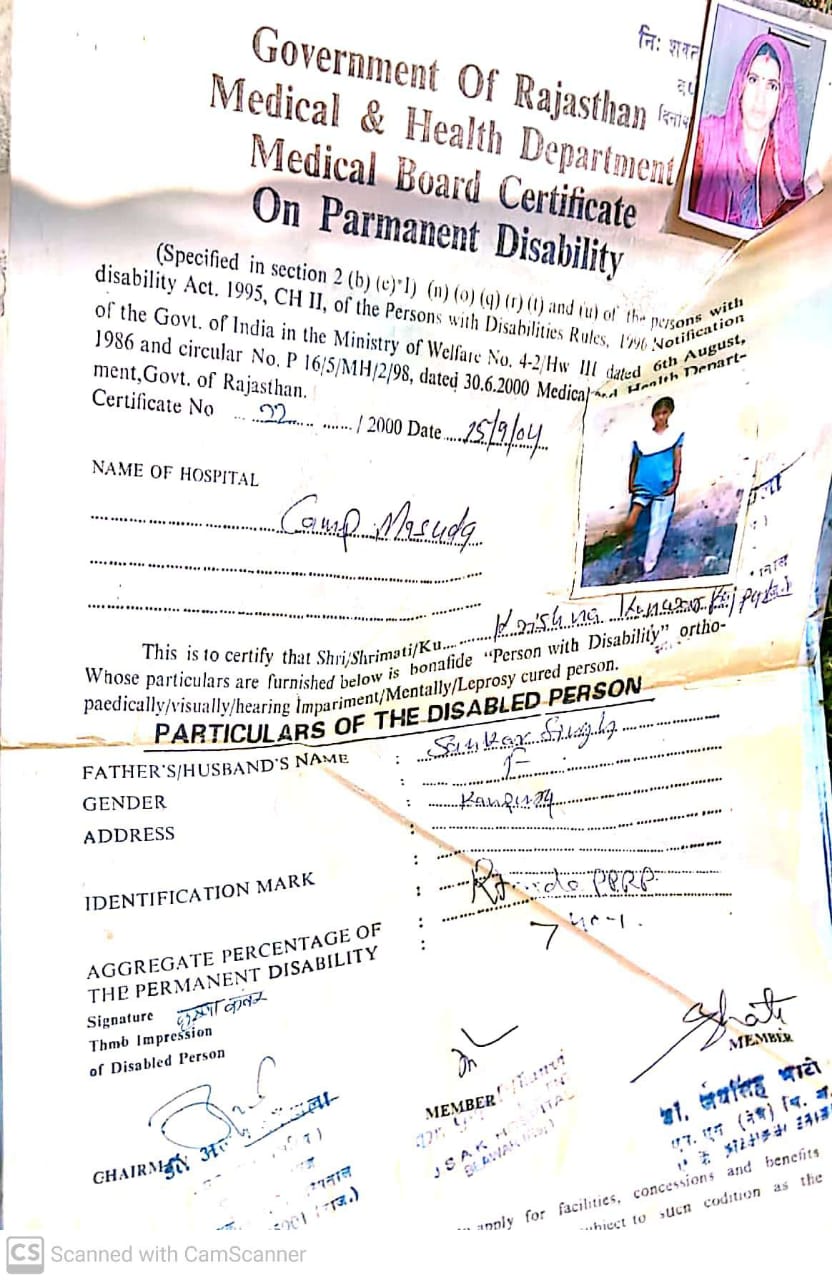 नि: शक्त
Government Of Rajasthan
Medical & Health Department
Medical Board Certificate
On Parmanent Disability
(Specified in section 2 (b) (e) I) (n) (o) (q) (r) (t) and (u) of the persons with
disability Act. 1995, CH II, of the Persons with Disabilities Rules, 1996 Notification
of the Govt. of India in the Ministry of Welfare No. 4-2/Hw III dated 6th August,
1986 and circular No. P 16/5/MH/2/98, dated 30.6.2000 Medical and Health Depart-
ment,Govt. of Rajasthan.
Certificate No ... 22 ... / 2000 Date .... 25/9/04
NAME OF HOSPITAL
Camp Masuda
This is to certify that Shri/Shrimati/Ku....... Krishna Kunwar
Whose particulars are furnished below is bonafide "Person with Disability" ortho-
paedically/visually/hearing Impariment/Mentally/Leprosy cured person.
PARTICULARS OF THE DISABLED PERSON
FATHER'S/HUSBAND'S NAME : Sankar Singh
GENDER : F
ADDRESS :
IDENTIFICATION MARK : PPRP
AGGREGATE PERCENTAGE OF :
THE PERMANENT DISABILITY :
Signature कृष्णा कंवर
Thmb Impression
of Disabled Person
CHAIRMAN
MEMBER
JSAK HOSPITAL
BEAWAR
MEMBER
डॉ. भाटी
apply for facilities, concessions and benefits
subject to such codition as the
CS Scanned with CamScanner